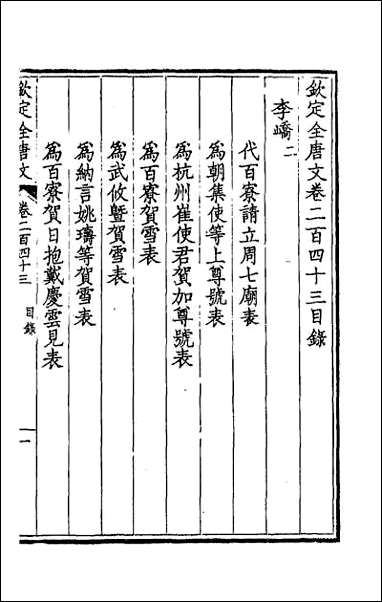 欽定全唐文卷二百四十三目錄
李嶠二
代百寮請立周七廟表
爲朝集使等上尊號表
爲杭州崔使君賀加尊號表
爲百寮賀雪表
爲武攸暨賀雪表
爲納言姚璹等賀雪表
爲百寮賀日抱戴慶雲見表
欽定全唐文
卷二百四十三
目錄
一